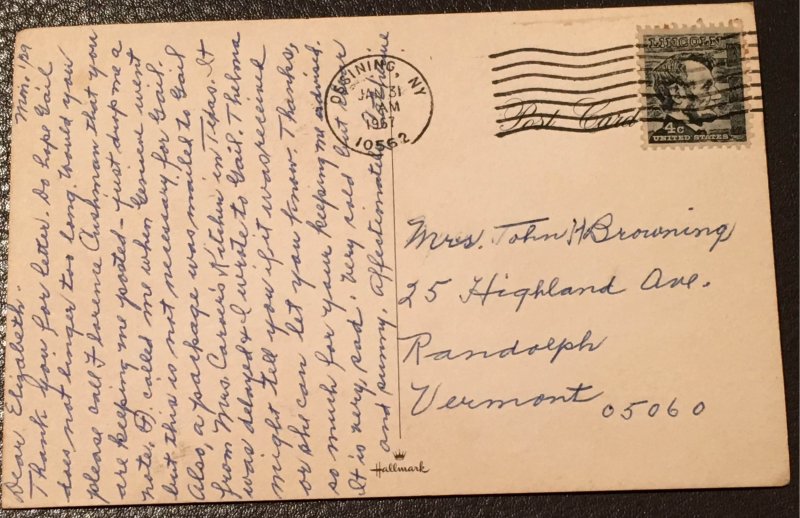 Mon. 1/29
Dear Elizabeth.
Thank you for letter. Do hope Gail
does not linger too long. Would you
please call Florence Cushman that you
are keeping me posted - just drop me a
note. F. called me when Genieve went
but this is not necessary for Gail.
Also, a package was mailed to Gail
from Mrs. Carver's Kitchen in Texas. It
was delayed & I wrote to Gail. Thelma
might tell you if it was received
or she can let you know. Thanks,
so much for your keeping me advised.
It is very, sad. Very cold but clear
and sunny. Affectionately,
OSSINING, NY
JAN 31
M
1967
10562
Post Card
LINCOLN
4c
UNITED STATES
Mrs. John H Browning
25 Highland Ave.
Randolph
Vermont 05060
Hallmark